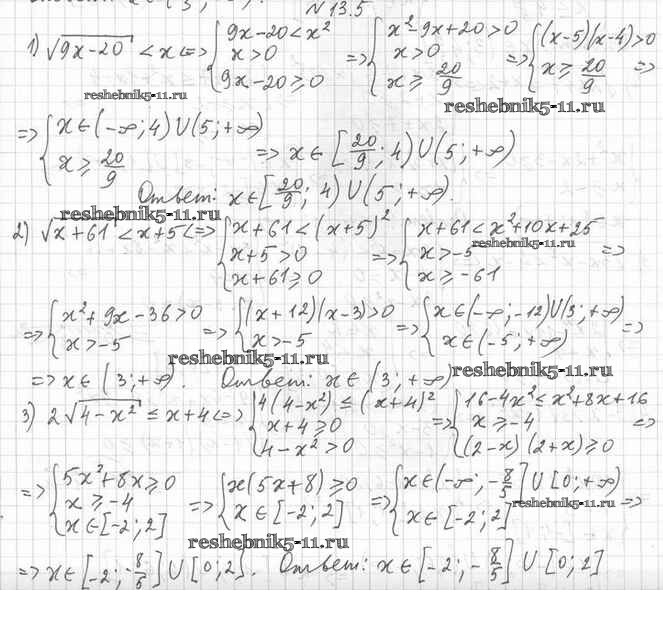 N 13.5
1) √(9x-20) < x <=> { 9x-20 < x² ; x > 0 ; 9x-20 ≥ 0 => { x²-9x+20 > 0 ; x > 0 ; x ≥ 20/9 => { (x-5)(x-4) > 0 ; x ≥ 20/9 =>
reshebnik5-11.ru
reshebnik5-11.ru
=> { x ∈ (-∞; 4) ∪ (5; +∞) ; x ≥ 20/9 => x ∈ [20/9; 4) ∪ (5; +∞)
Ответ: x ∈ [20/9; 4) ∪ (5; +∞).
reshebnik5-11.ru
2) √(x+61) < x+5 <=> { x+61 < (x+5)² ; x+5 > 0 ; x+61 ≥ 0 => { x+61 < x²+10x+25 ; x > -5 ; x ≥ -61 =>
reshebnik5-11.ru
=> { x²+9x-36 > 0 ; x > -5 => { (x+12)(x-3) > 0 ; x > -5 => { x ∈ (-∞; -12) ∪ (3; +∞) ; x ∈ (-5; +∞) =>
reshebnik5-11.ru
reshebnik5-11.ru
=> x ∈ (3; +∞). Ответ: x ∈ (3; +∞)
3) 2√(4-x²) ≤ x+4 <=> { 4(4-x²) ≤ (x+4)² ; x+4 ≥ 0 ; 4-x² > 0 => { 16-4x² ≤ x²+8x+16 ; x ≥ -4 ; (2-x)(2+x) ≥ 0 =>
=> { 5x²+8x ≥ 0 ; x ≥ -4 ; x ∈ [-2; 2] => { x(5x+8) ≥ 0 ; x ∈ [-2; 2] => { x ∈ (-∞; -8/5] ∪ [0; +∞) ; x ∈ [-2; 2] =>
reshebnik5-11.ru
reshebnik5-11.ru
=> x ∈ [-2; -8/5] ∪ [0; 2]. Ответ: x ∈ [-2; -8/5] ∪ [0; 2]